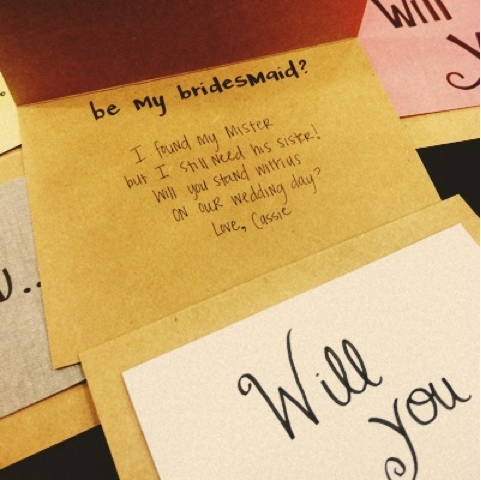 be my bridesmaid?
I found my Mister
but I still need his sister!
Will you stand with us
on our wedding day?
Love, Cassie
Will
you
Will
y
u..